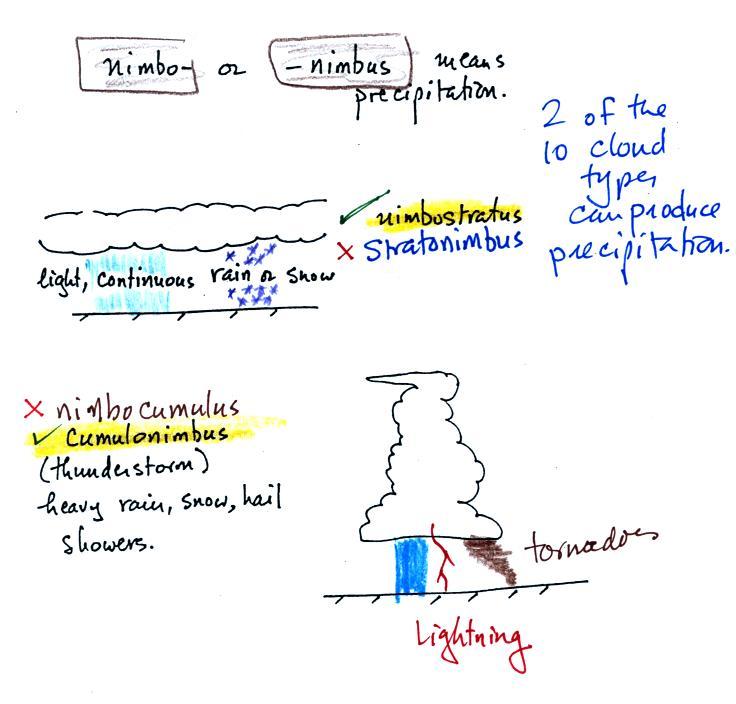 nimbo- or -nimbus means
precipitation.
2 of the
10 cloud
types
can produce
precipitation.
nimbostratus
Stratonimbus
light, continuous rain or snow
nimbocumulus
Cumulonimbus
(thunderstorm)
heavy rain, snow, hail
showers.
tornadoes
Lightning